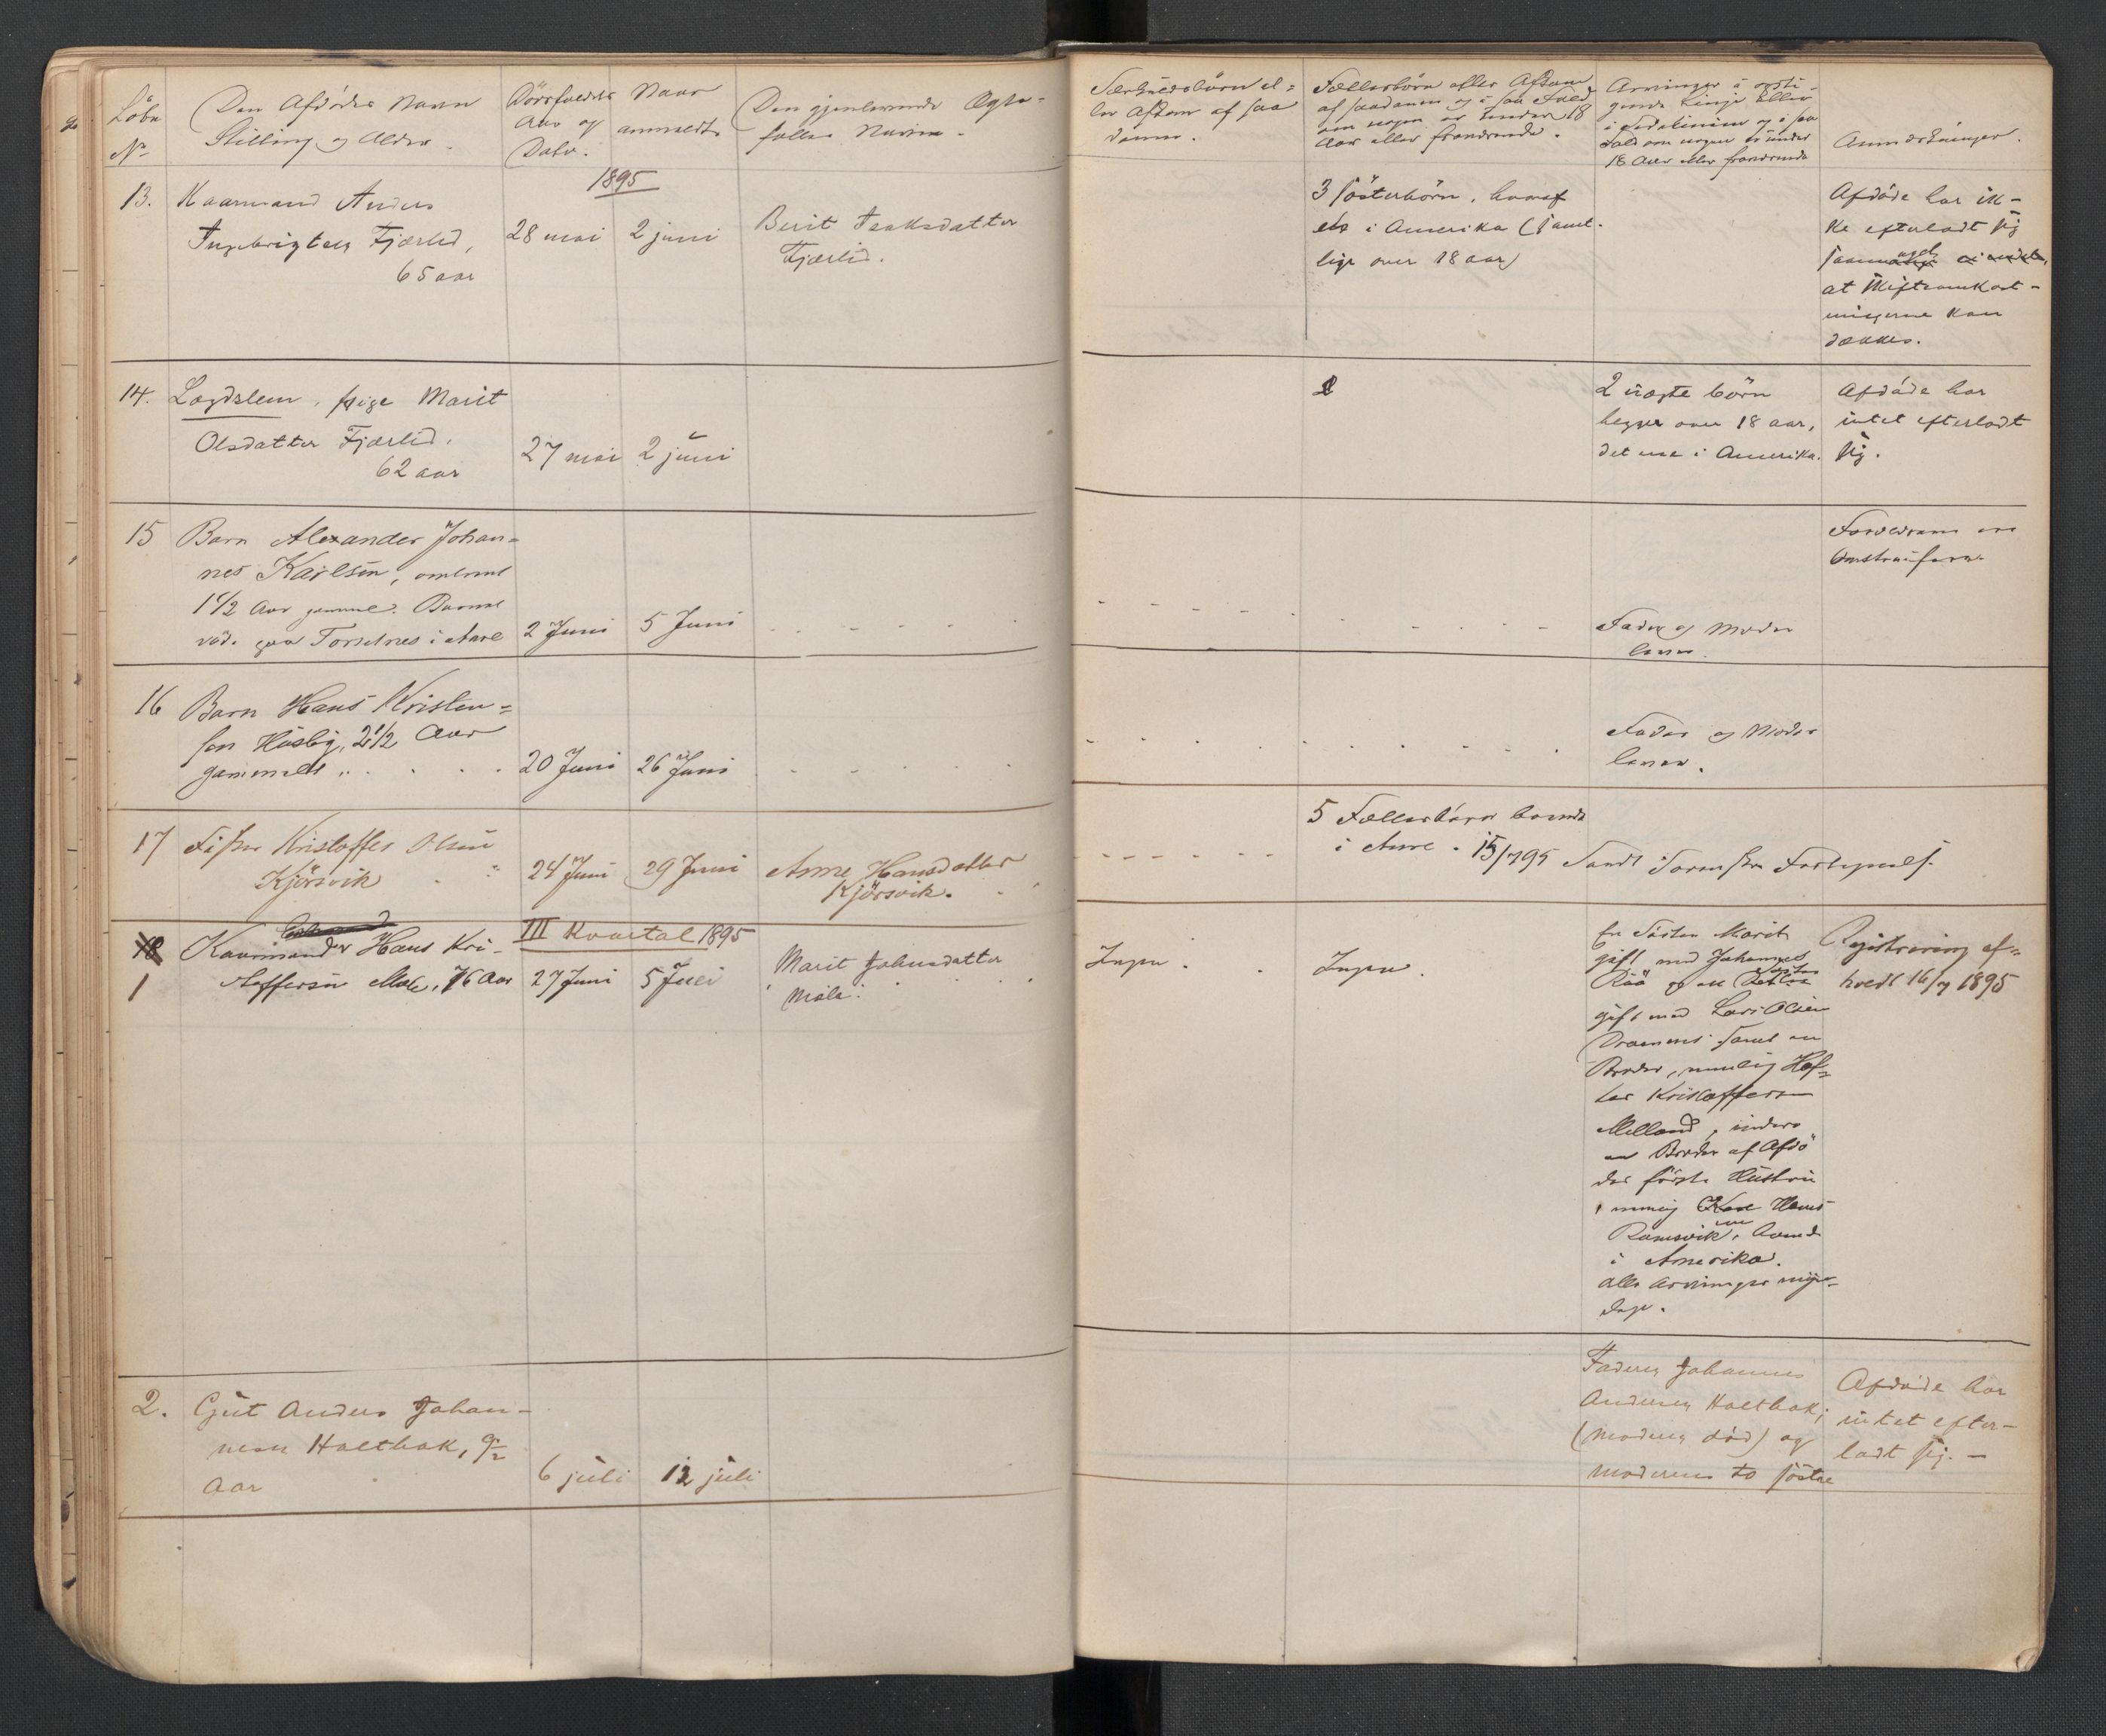 Löbe
No
Den Afdödes Navn
Stilling og Alder.
Dödsfaldets
Aar og
Dato.
Naar
anmeldt
Den gjenlevende Ægte-
fælles Navn.
Særkuldsbörn el-
ler Afkom af saa
danne.
Fællesbörn eller Afkom
af saadanne og i saa Fald
om nogen er under 18
Aar eller fraværende.
Arvinger i opsti-
gende Linje eller
i Sidelinien og i saa
Fald om nogen er under
18 Aar eller fraværende
Anmærkninger.
1895
13. Kaarmand Anders
Ingebrigtsen Fjærlid,
65 aar
28 mai
2 juni
Berit Isaksdatter
Fjærlid.
3 söskenbörn, hvoraf
i Amerika (samt-
lige over 18 aar)
Afdöde har ik-
ke efterladt sig
saa meget
at skifteomkost-
ningerne kan
dækkes.
14. Lægdslem, pige Marit
Olsdatter Fjærlid.
62 aar
27 mai
2 juni
2 uægte börn
begge over 18 aar,
det ene i Amerika.
Afdöde har
intet efterladt
sig.
15 Barn Alexander Johan-
nes Karlsen, omtrent
1 1/2 Aar gammel. Barnet
död paa i Aure
2 Juni
5 Juni
Fader og Moder
lever.
Forældrene er
16 Barn Hans Kristen-
sen Husby, 2 1/2 Aar
gammelt
20 Juni
26 Juni
Fader og Moder
lever.
17 Fisker Kristoffer Olsen
Kjörsvik
24 Juni
29 Juni
Anne Hansdatter
Kjörsvik.
5 Fællesbörn boende
i Aure. 15/7 95 Sendt Sorenskr.
III Kvartal 1895
18
1
Kaarmand Hans Kri-
stoffersen Mæle, 76 Aar
27 Juni
5 Juli
Marit Johnsdatter
Mæle.
Ingen.
Ingen.
En Söster Marit
gift med Johannes
og en Söster
gift med Lars Olsen
samt en
Broder, nemlig
Kristoffersen
Melland,
en Broder af Afdö
des förste Hustru
nemlig Hans
Ramsvik, boende
i Amerika.
alle Arvinger myn-
dige.
Registrering af-
holdt 16/7 1895
2. Gut Anders Johan-
nesen Holtbak, 9/12
Aar
6 juli
12 juli
Faderen Johannes
Andersen Holtbak;
(Moderen död) og
moderens to söstre
Afdöde har
intet efter-
ladt sig. -